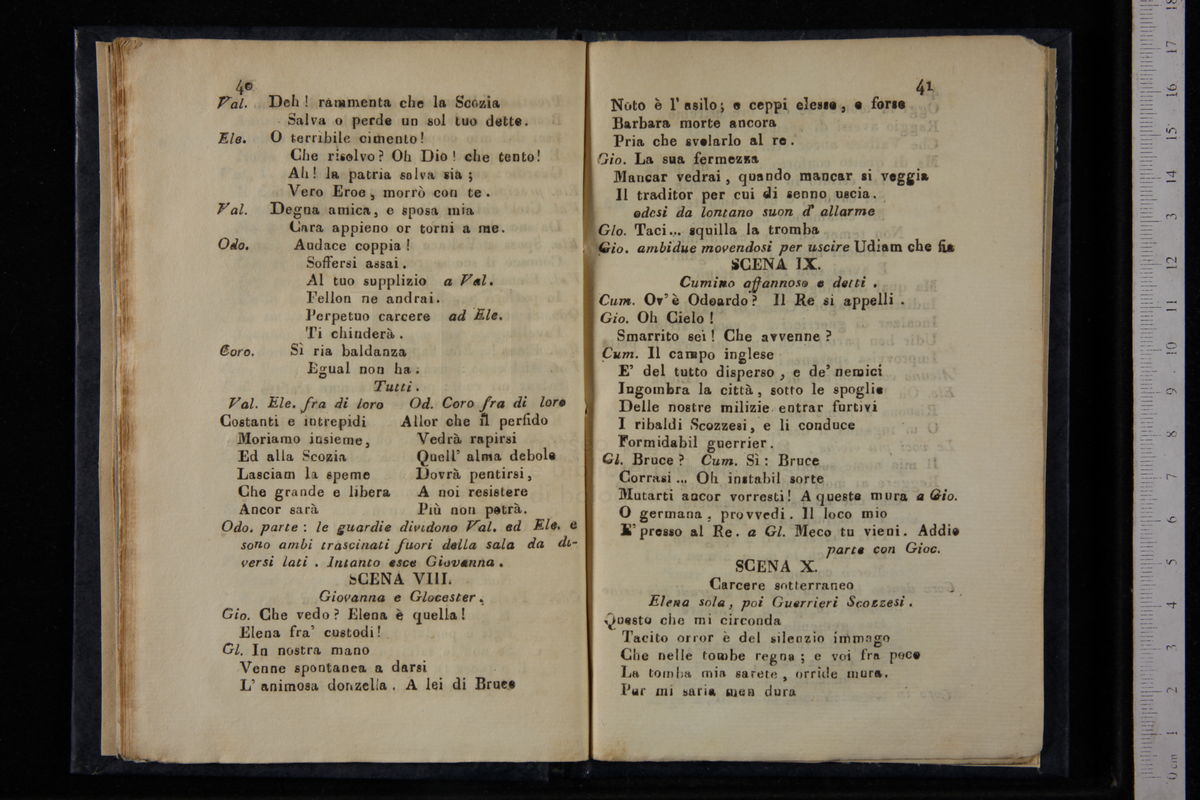 40
Val. Deh! rammenta che la Scozia
Salva o perde un sol tuo dette.
Ele. O terribile cimento!
Che risolvo? Oh Dio! che tento!
Ah! la patria salva sia;
Vero Eroe, morrò con te.
Val. Degna amica, e sposa mia
Cara appieno or torni a me.
Odo. Audace coppia!
Soffersi assai.
Al tuo supplizio a Val.
Fellon ne andrai.
Perpetuo carcere ad Ele.
Ti chiuderà.
Coro. Sì ria baldanza
Egual non ha.
Tutti.
Val. Ele. fra di loro Od. Coro fra di loro
Costanti e intrepidi Allor che il perfido
Moriamo insieme, Vedrà rapirsi
Ed alla Scozia Quell' alma debole
Lasciam la speme Dovrà pentirsi,
Che grande e libera A noi resistere
Ancor sarà Più non potrà.
Odo. parte: le guardie dividono Val. ed Ele. e
sono ambi trascinati fuori della sala da di-
versi lati. Intanto esce Giovanna.
SCENA VIII.
Giovanna e Glocester.
Gio. Che vedo? Elena è quella!
Elena fra' custodi!
Gl. In nostra mano
Venne spontanea a darsi
L' animosa donzella. A lei di Bruce
41
Noto è l' asilo; e ceppi elesse, e forse
Barbara morte ancora
Pria che svelarlo al re.
Gio. La sua fermezza
Mancar vedrai, quando mancar si veggia
Il traditor per cui di senno uscia.
odesi da lontano suon d' allarme
Glo. Taci... squilla la tromba
Gio. ambidue movendosi per uscire Udiam che fia
SCENA IX.
Cumino affannoso e detti.
Cum. Ov' è Odoardo? Il Re si appelli.
Gio. Oh Cielo!
Smarrito sei! Che avvenne?
Cum. Il campo inglese
E' del tutto disperso, e de' nemici
Ingombra la città, sotto le spoglie
Delle nostre milizie entrar furtivi
I ribaldi Scozzesi, e li conduce
Formidabil guerrier.
Gl. Bruce? Cum. Sì: Bruce
Corrasi... Oh instabil sorte
Mutarti ancor vorresti! A queste mura a Gio.
O germana, provvedi. Il loco mio
E' presso al Re. a Gl. Meco tu vieni. Addio
parte con Gioc.
SCENA X.
Carcere sotterraneo
Elena sola, poi Guerrieri Scozzesi.
Questo che mi circonda
Tacito orror è del silenzio immago
Che nelle tombe regna; e voi fra poco
La tomba mia sarete, orride mura.
Pur mi saria men dura